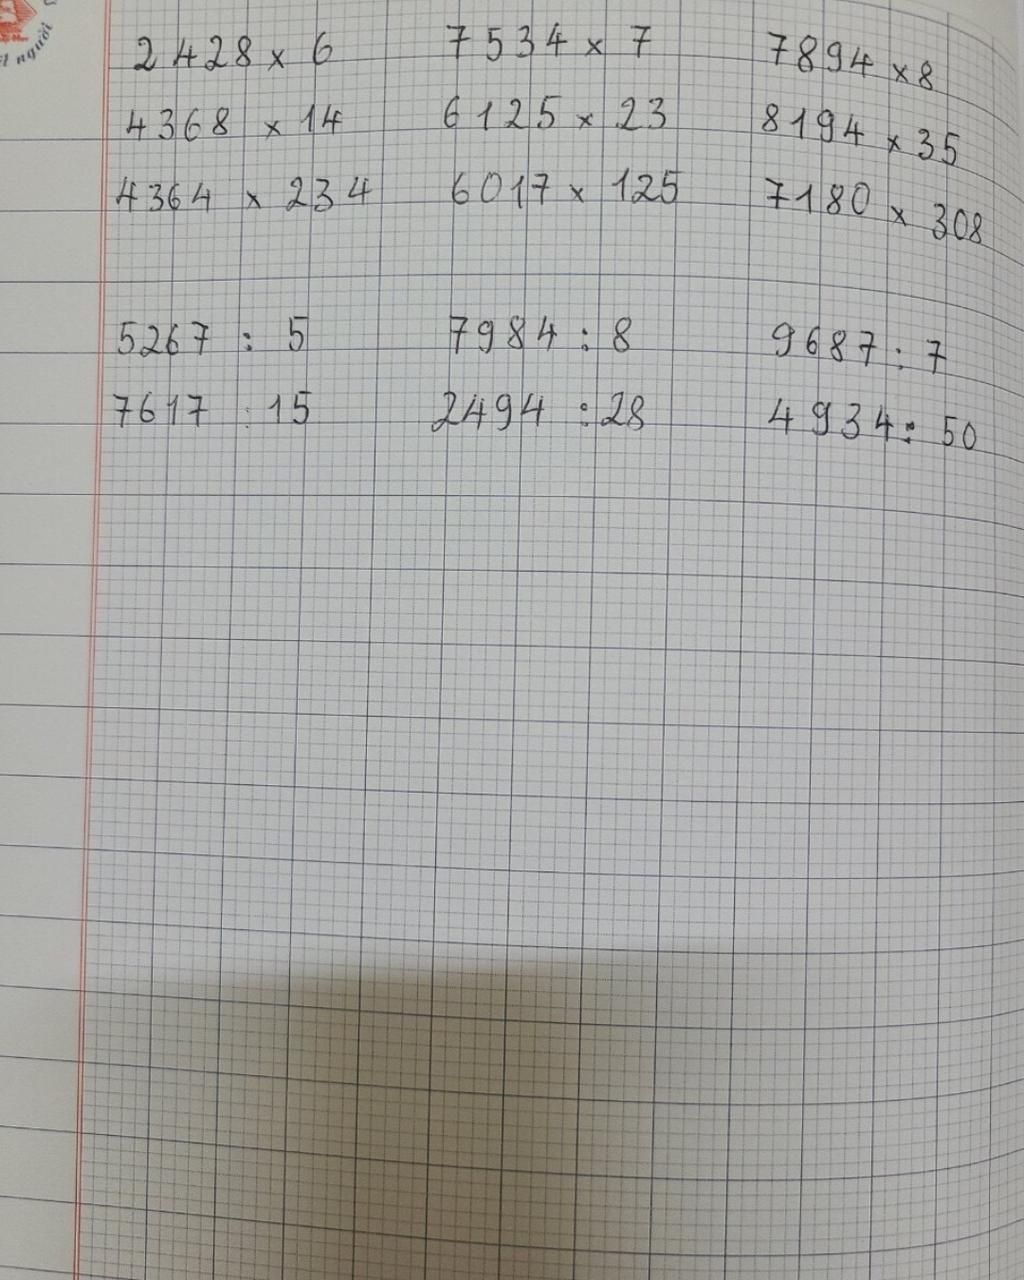 người
2428 x 6 7534 x 7 7894 x 8
4368 x 14 6125 x 23 8194 x 35
4364 x 234 6017 x 125 7180 x 308
5267 : 5 7984 : 8 9687 : 7
7617 : 15 2494 : 28 4934 : 50